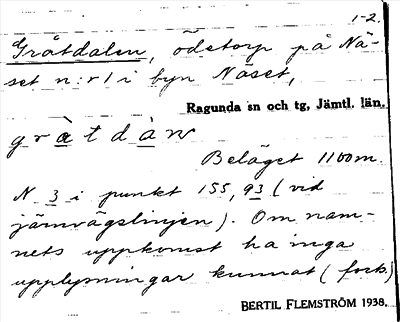 1-2.
Gråtdalen, ödetorp på Nä-
set n:r 1 i byn Näset,
Ragunda sn och tg, Jämtl. län.
gràtdàn
Beläget 1100 m.
N 3 i punkt 155,93 (vid
järnvägslinjen). Om nam-
nets uppkomst ha inga
upplysningar kunnat (forts.)
BERTIL FLEMSTRÖM 1938.